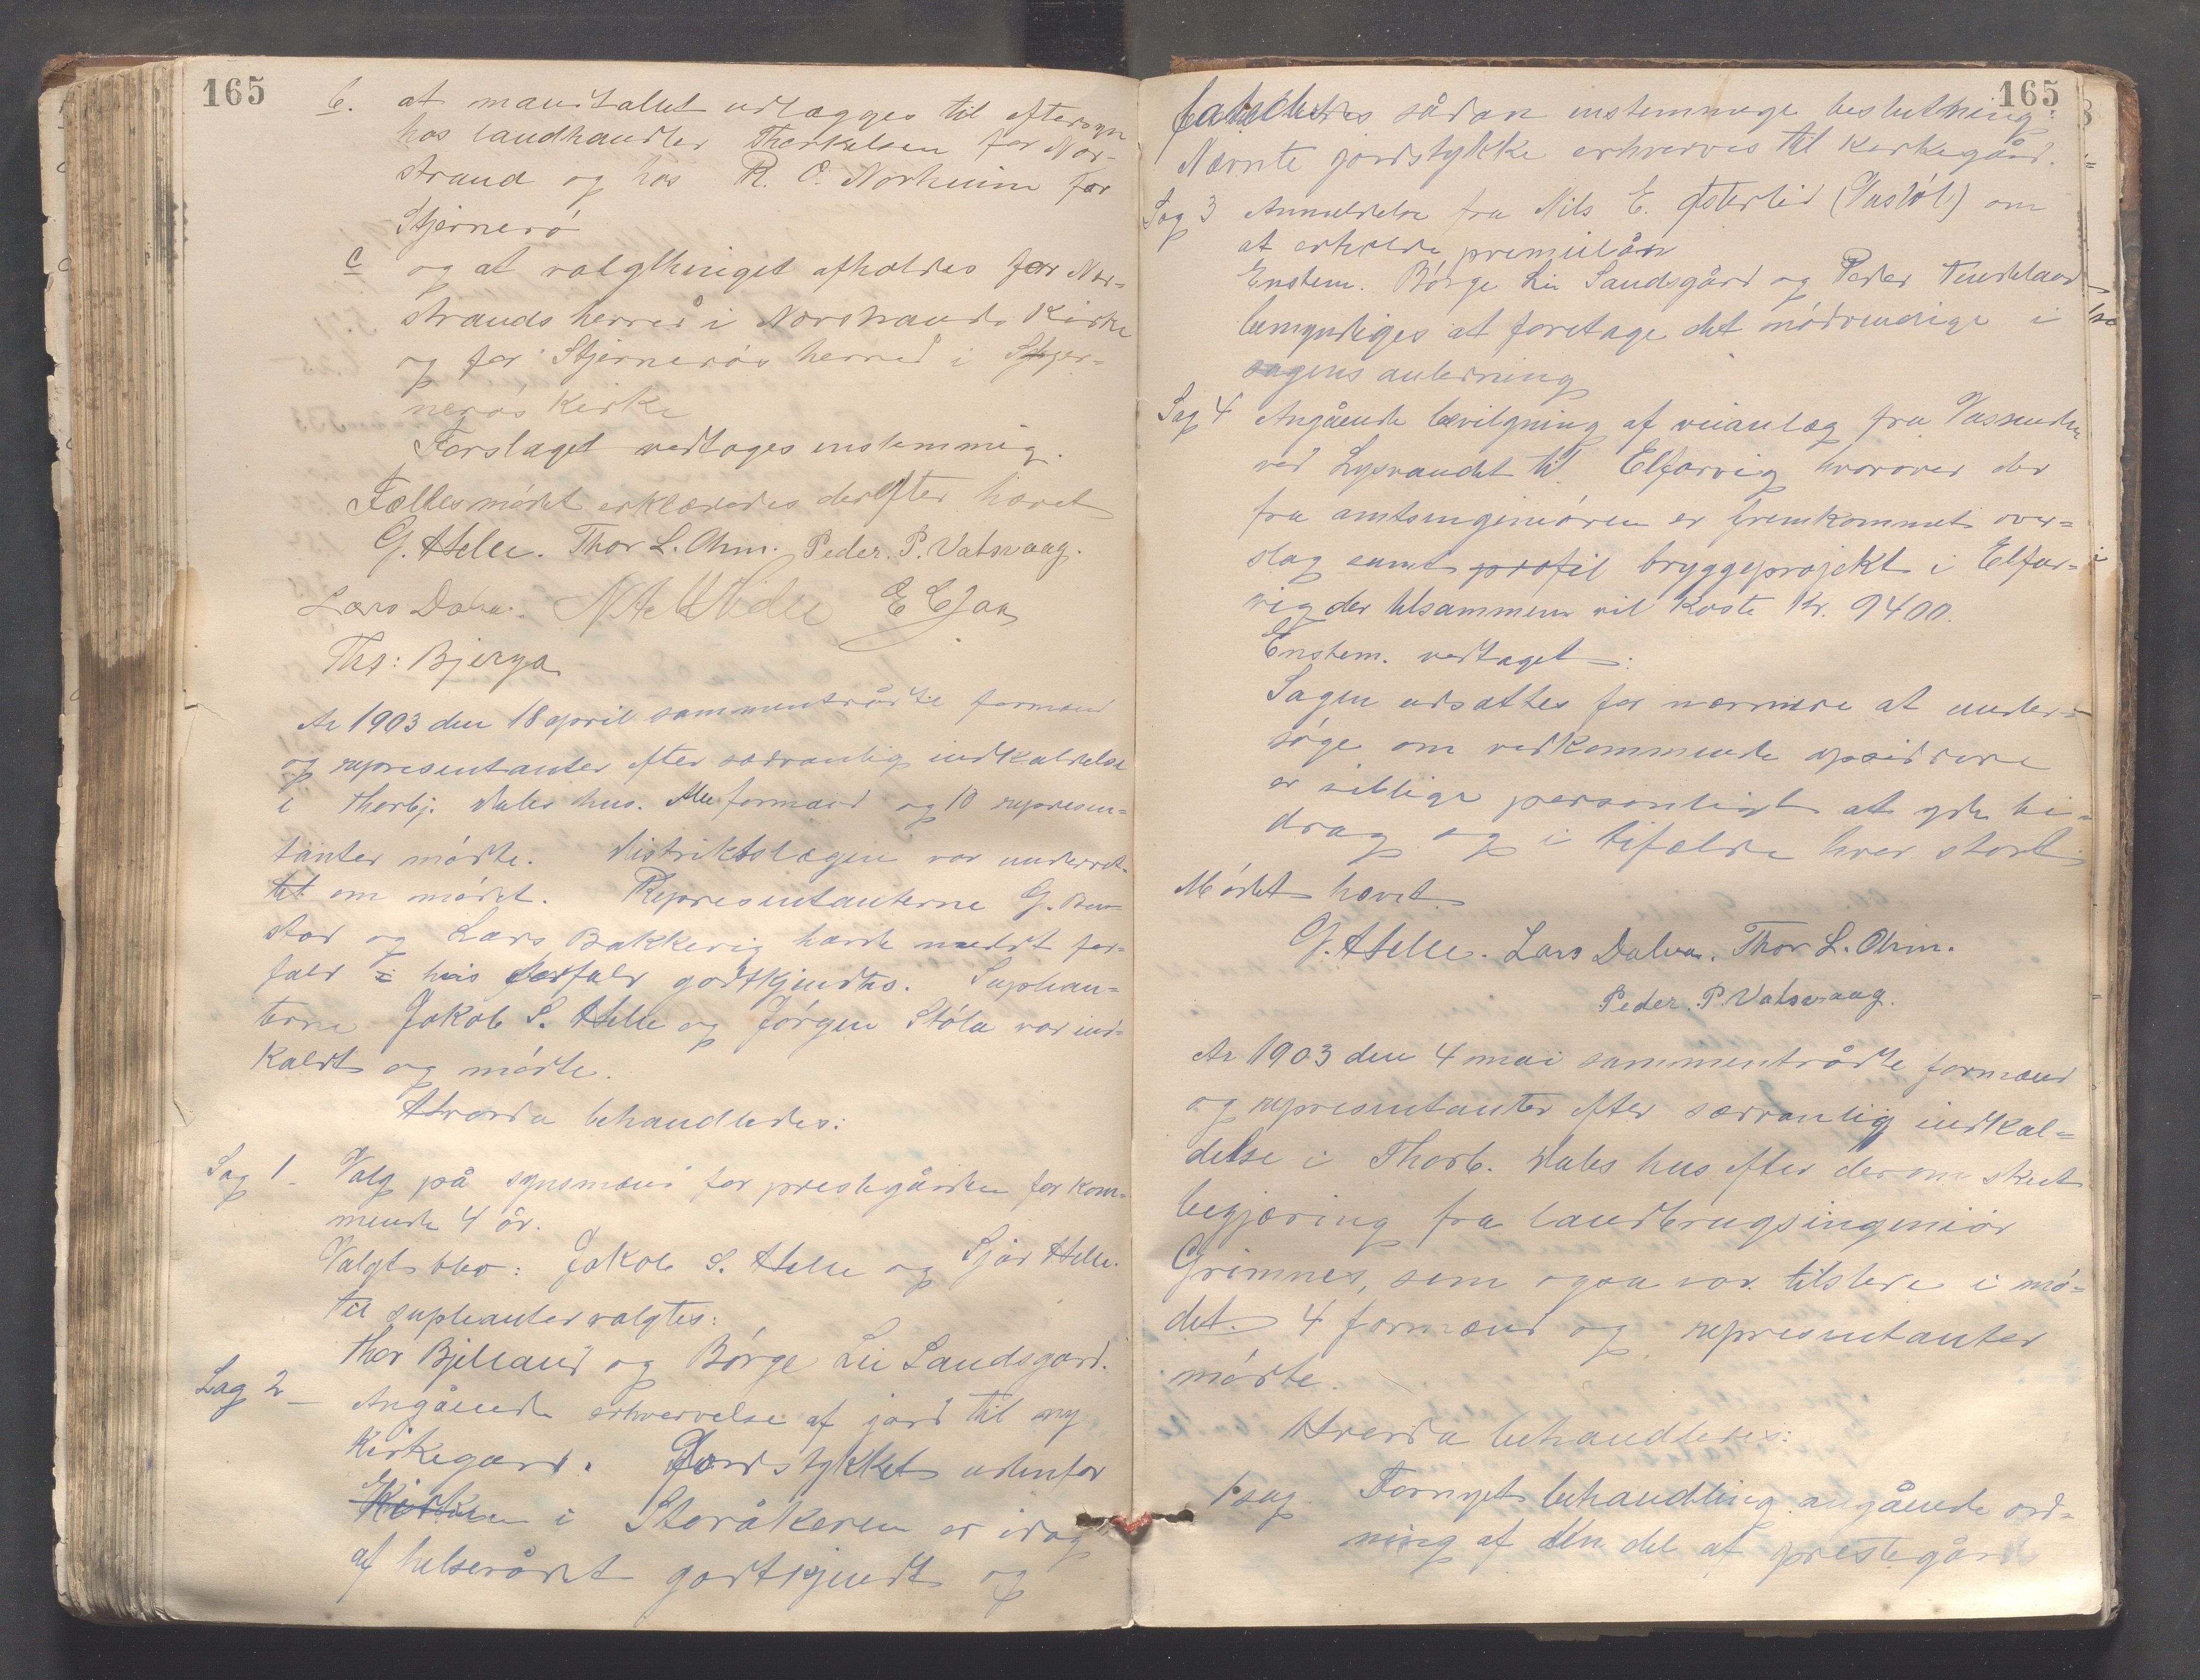 165
b. at mandtallet udlægges til eftersyn
hos landhandler Therkelsen for Nær-
strand og hos R. C. Norheim for
Stjernerö
c og at valgthinget afholdes for Nær-
strands herred i Nærstrands Kirke
og for Stjernerös herred i Stjer-
nerös Kirke
Forslaget vedtoges enstemmig.
Fællesmödet erklæredes derefter hævet
G. Helle. Thor L. Ohm. Peder. P. Vatsvaag.
Lars Dalva.
Ths: Bjerga
År 1903 den 18 april sammentrådte formænd
og representanter efter sædvanlig indkaldelse
i Thorbj. Dales hus. Alle formænd og 10 represen-
tanter mödte. Distriktslægen var underret-
tet om mödet. Representanterne G.
og Lars Bakkevig havde meldt for-
fald i hvis forfald godtkjendtes. Suplean-
terne Jakob S. Helle og Jörgen Stöle var ind-
kaldt og mödte.
Hvorda behandledes:
Sag 1 Valg på synsmænd for prestegården for kom-
mende 4 år.
Valgt blev: Jakob S. Helle og Sjur Helle.
til supleanter valgtes:
Thor Bjelland og Börge Lie Sandsgard.
Sag 2 Angående erhvervelse af jord til ny
Kirkegård. Jordstykket udenfor
Kirken i Storåkeren er idag
af helserådet godtkjendt og
165
fattedes sådan enstemmige beslutning:
Nævnte jordstykke erhverves til Kirkegård.
Sag 3 Anmeldelse fra Nils E. Österlid (Vastöl) om
at erholde premielån
Enstem. Börge Lie Sandsgård og Peder Tendeland
bemyndiges at foretage det nödvendige i
sagens anledning
Sag 4 Angående bevilgning af veianlæg fra Vassenden
ved Lysvandet til Elfarvig hvorover der
fra amtsingeniören er fremkommet over-
slag samt profil bryggeprojekt i Elfar-
vig der tilsammen vil koste Kr. 9400.
Enstem. vedtaget:
Sagen udsættes for nærmere at under-
söge om vedkommende opsiddere
er villige personligt at yde bi-
drag og i tifælde hvor stort
Mödet hævet
G. Helle. Lars Dalva. Thor L. Ohm.
Peder. P. Vatsvaag.
År 1903 den 4 mai sammentrådte formænd
og representanter efter sædvanlig indkal-
delse i Thorb. Dales hus efter derom skeet
begjæring fra landbrugsingeniör
Grimnes, som ogsa var tilstede i mö-
det. 4 formænd og representanter
mödte.
Hvorda behandledes:
1 sag. Fornyet behandling angående ord-
ning af den del af prestegård